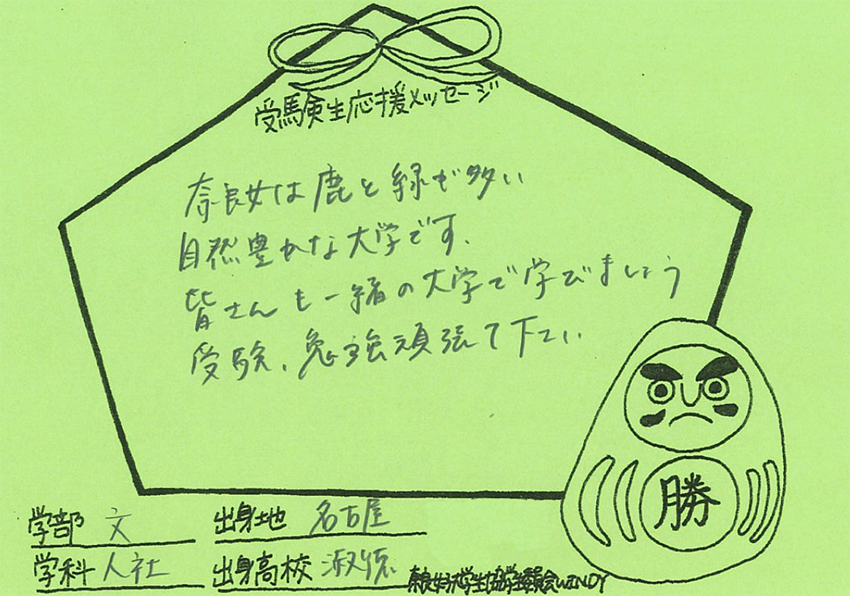 受験生応援メッセージ
奈良女は鹿と緑が多い
自然豊かな大学です.
皆さんも一緒の大学で学びましょう
受験、勉強頑張て下さい
勝
学部 文 出身地 名古屋
学科 人社 出身高校 淑徳
奈良女子大学生協学生委員会WINDY